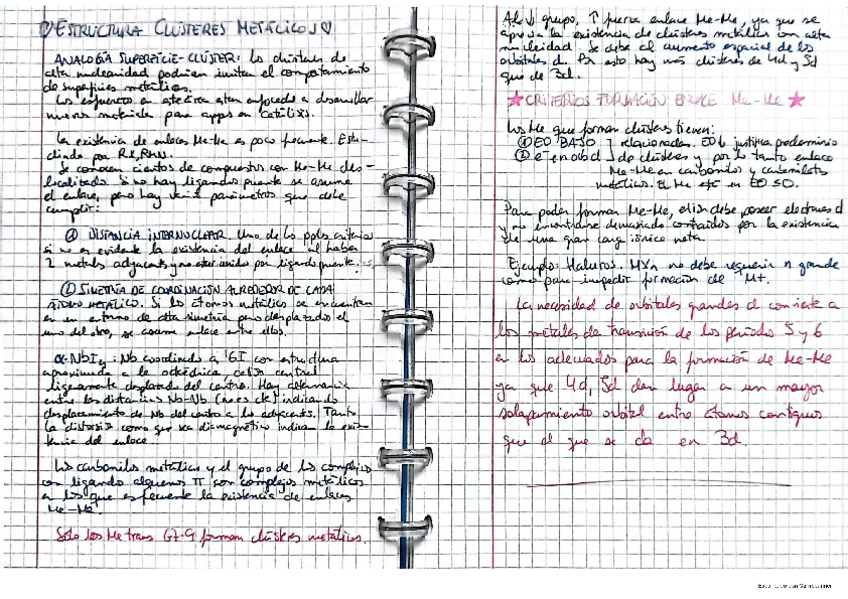 ♡ESTRUCTURA CLÚSTERES METÁLICOS♡
ANALOGÍA SUPERFICIE-CLÚSTER: Los clústeres de
alta nuclearidad podrían imitar el comportamiento
de superficies metálicas.
Los esfuerzos en este área están enfocados a desarrollar
nuevos materiales para apps en catálisis.
La existencia de enlaces Me-Me es poco frecuente. Estu-
diada por RX, RMN.
Se conocen cientos de compuestos con Me-Me des-
localizado. Si no hay ligandos puente se asume
el enlace, pero hay varios parámetros que debe
cumplir:
① DISTANCIA INTERNUCLEAR. Uno de los ppales criterios
si no es evidente la existencia del enlace al haber
2 metales adyacentes y no estar unidos por ligando puente.
② SIMETRÍA DE COORDINACIÓN ALREDEDOR DE CADA
ÁTOMO METÁLICO. Si los átomos metálicos se encuentran
en un entorno de alta simetría pero desplazados el
uno del otro, se asume enlace entre ellos.
α-NbI₄: Nb coordinado a 6I con estructura
aproximada a la octédrica, central
ligeramente desplazado del centro. Hay alternancia
entre las distancias Nb-Nb (no es cte) indicando
desplazamiento de Nb del centro a los adyacentes. Tanto
la distorsión como que sea diamagnético indican la exis-
tencia del enlace.
Los carbonilos metálicos y el grupo de los complejos
con ligando alquenos π son complejos metálicos
en los que es frecuente la existencia de enlaces
Me-Me.
Solo los Me trans G7-9 forman clústeres metálicos.
Al ↓ grupo, ↑ fuerza enlace Me-Me, ya que se
aprecia la existencia de clústeres metálicos con alta
nuclearidad. Se debe al aumento espacial de los
orbitales d. Por esto hay más clústeres de 4d y 5d
que de 3d.
★CRITERIOS FORMACIÓN ENLACE Me-Me★
Los Me que forman clústeres tienen:
① EO BAJO relacionadas. EO↓ justifica predominio
② e⁻ en orb d de clústeres y por lo tanto enlace
Me-Me en carbonilos y carbonilatos
metálicos. El Me está en EO ≤0.
Para poder formar Me-Me, el ion debe poseer electrones d
y no encontrarse demasiado contraídos por la existencia
de una gran carga iónica neta.
Ejemplo: Haluros. MXn no debe requerir n grande
como para impedir formación de M⁺.
La necesidad de orbitales grandes d convierte a
los metales de transición de los periodos 5 y 6
en los adecuados para la formación de Me-Me
ya que 4d, 5d dan lugar a un mayor
solapamiento orbital entre átomos contiguos
que el que se da en 3d.